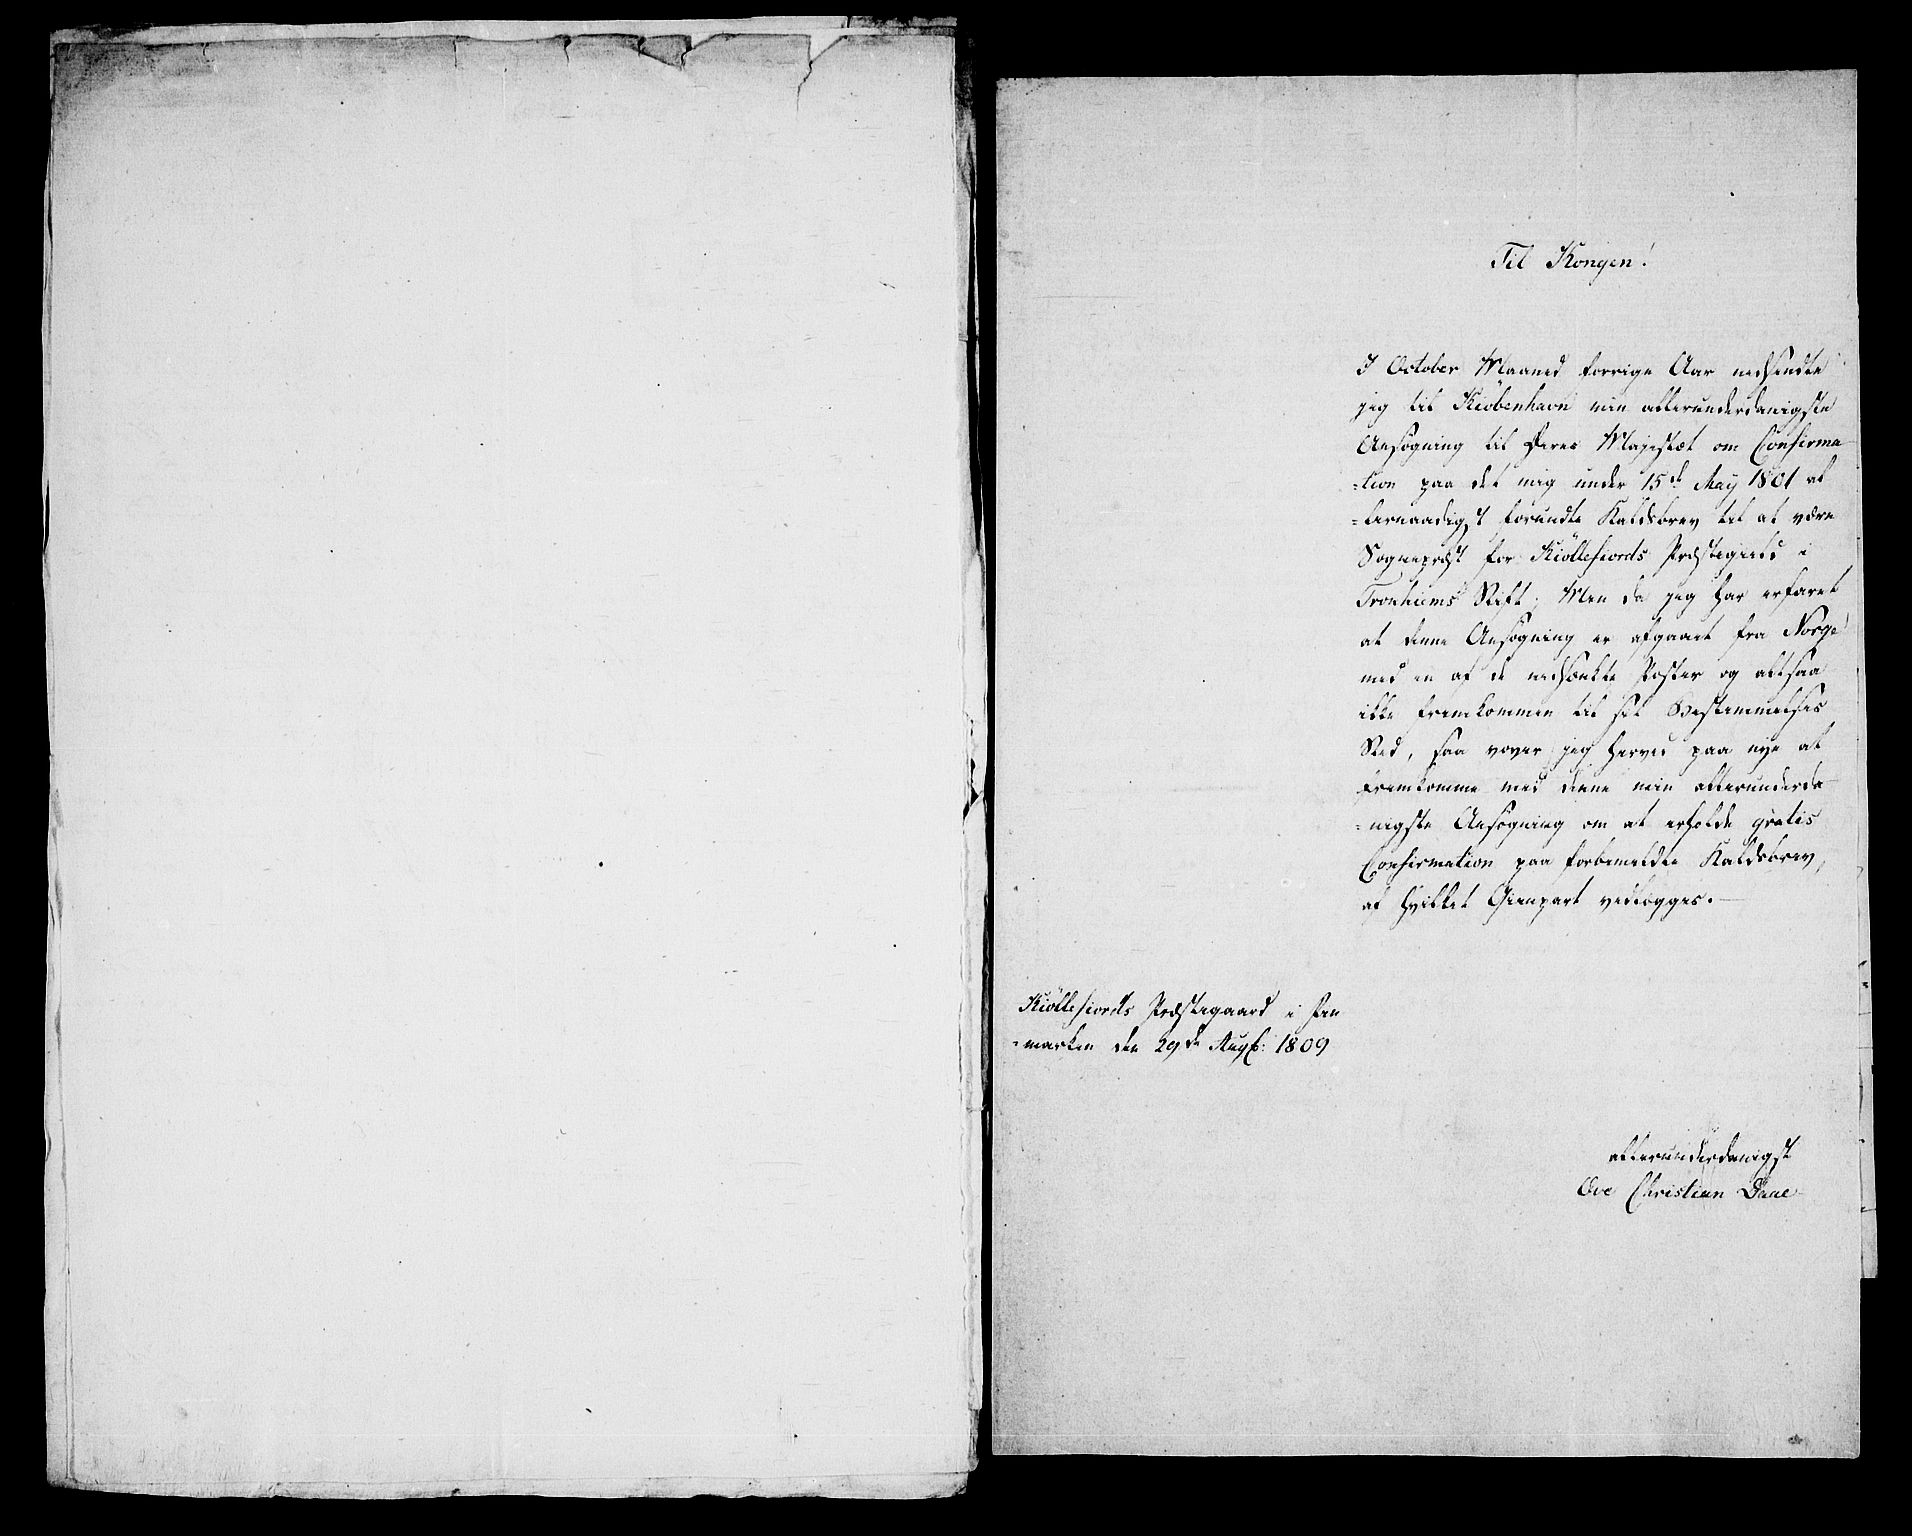 Til Kongen!
I October Maaned forrige Aar nedsendte
jeg til Kiöbenhavn min allerunderdanigste
Ansøgning til Deres Majestæt om Confirma
=tion paa det mig under 15d May 1801 al
=lernaadigst forundte Kaldsbrev til at være
Sognepræst for Kiöllefiords Præstegield i
Tronhiems Stift; Men da jeg har erfaret
at denne Ansøgning er afgaaet fra Norge
med en af de nedsænkte Poster og altsaa
ikke fremkommen til sit Bestemmelses
Sted, saa vover jeg herved paa nye at
fremkomme med denne min allerunderda
=nigste Ansøgning om at erholde gratis
Confirmation paa forbemeldte Kaldsbrev,
af hvilket Gienpart vedlægges.
Kiöllefiords Præstegaard i Fin
=marken den 29de Augs: 1809
allerunderdanigst
Ove Christian Daae